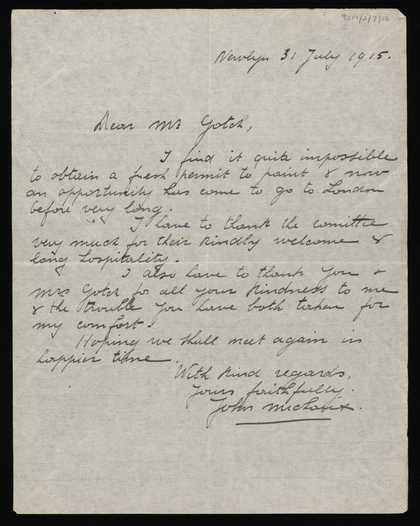 Newlyn 31 July 1915.
Dear Mr Gotch,
I find it quite impossible
to obtain a fresh permit to paint & now
an opportunity has come to go to London
before very long.
I have to thank the comittee
very much for their kindly welcome &
long hospitality.
I also have to thank you &
Mrs Gotch for all your kindness to me
& the trouble you have both taken for
my comfort.
Hoping we shall meet again in
happier time
With kind regards.
Yours faithfully.
John